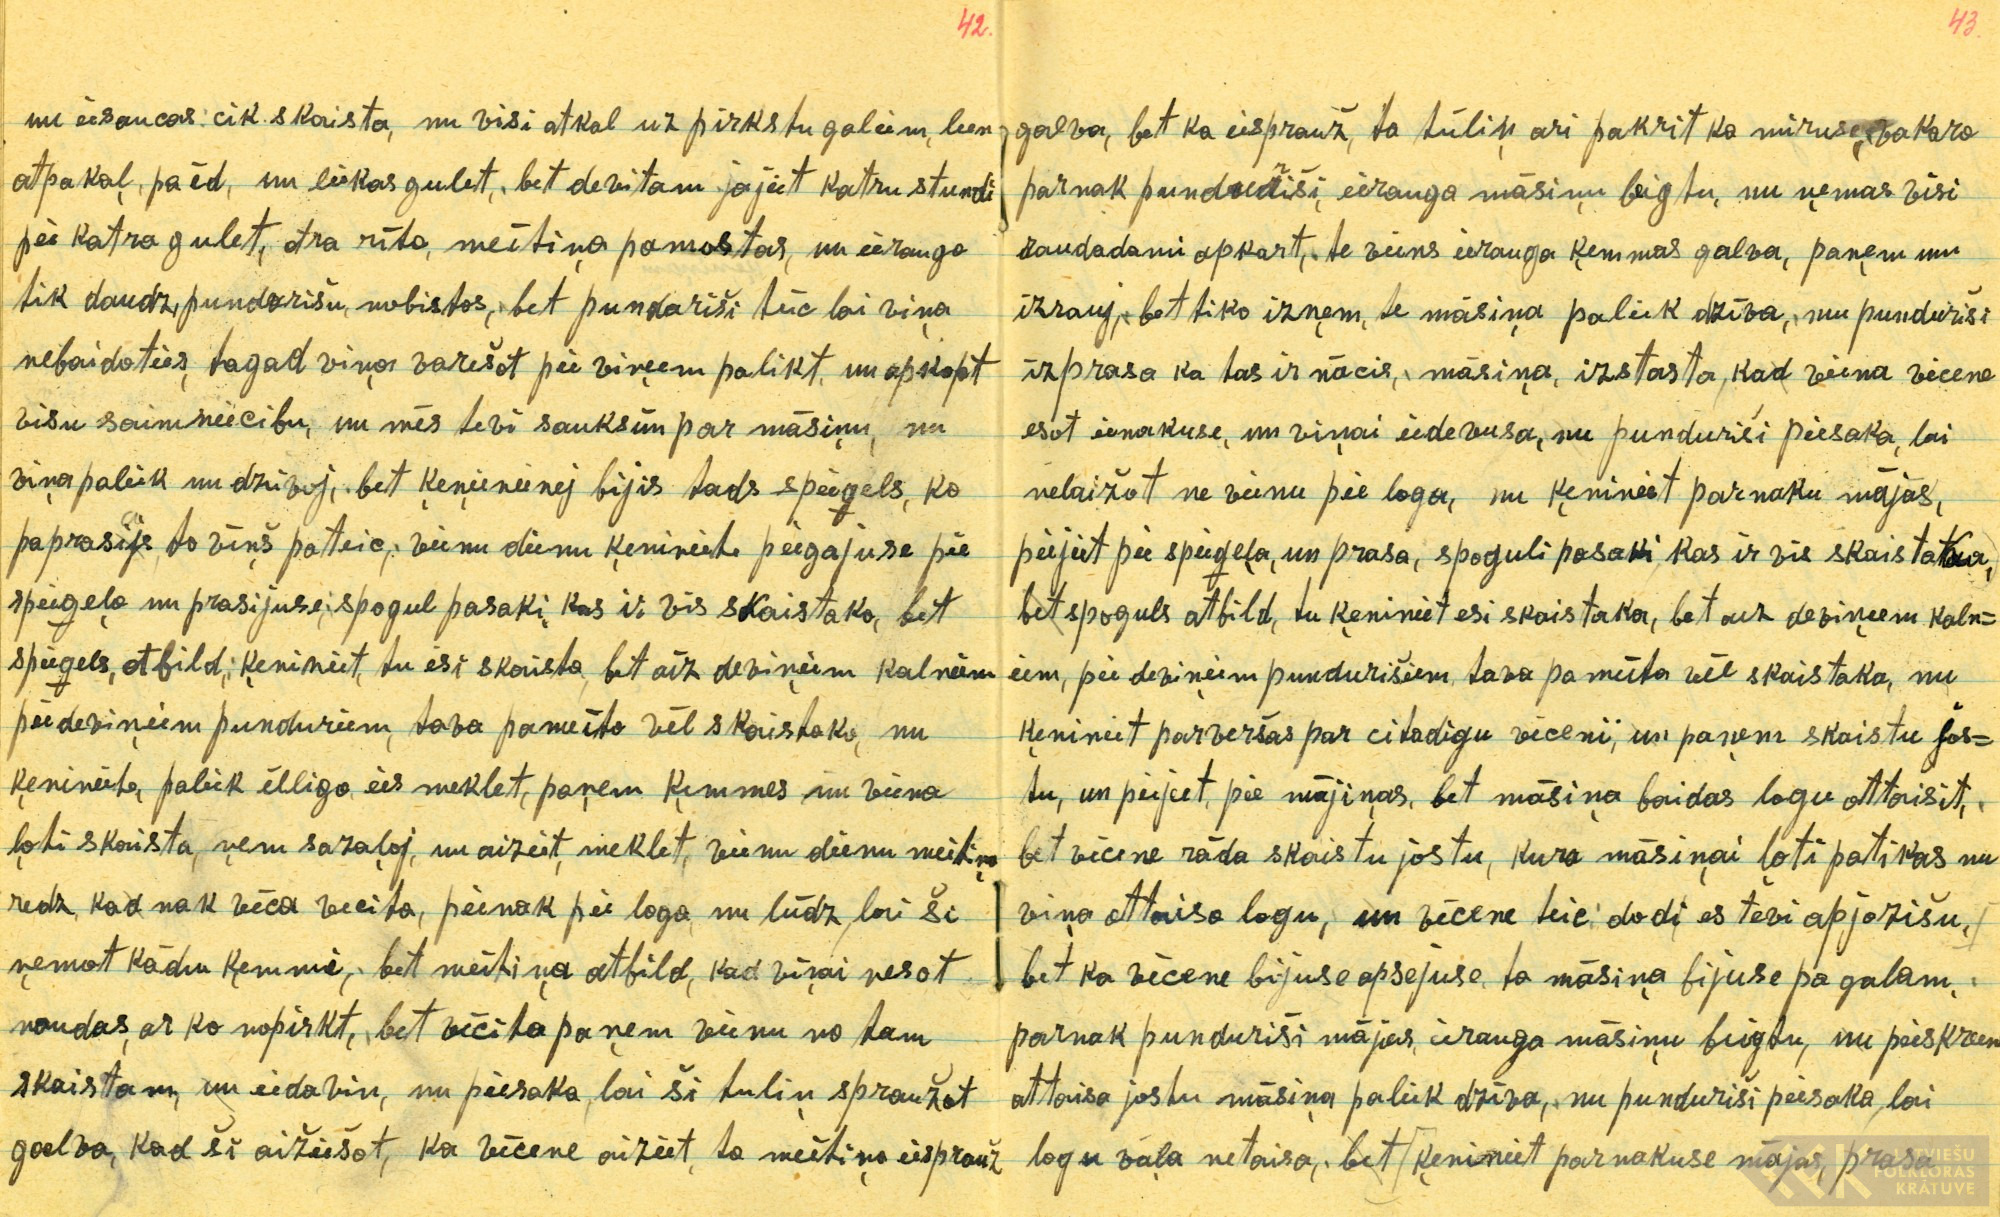 42.
nu eesaucas: cik skaista, nu visi atkal uz pirkstu galeem, leen
atpakaļ, paēd, un leekas gulet, bet devitam jajeet katru stundi
pee katra gulet, otra rīta, meitiņa pamostas, un eerauga
tik daudz, pundurišu, nobistas, bet pundariši teic lai viņa
nebaidotees, tagad viņa varešot pee viņeem palikt, un apkopt
visu saimneecibu, un mēs tevi sauksim par māsiņu, nu
viņa paleek un dzivoj, bet ķeņineenej bijis tads speegels, ko
paprasijs, to viņš pateic, veenu deenu ķenineete peegajuse pee
speegeļa un prasijuse; spogul pasaki, kas ir vis skaistaka, bet
speegels, atbild; ķenineet, tu esi skaista, bet aiz deviņeem kalneem
pee deviņeem pundureem, tava pameita vēl skaistaka, nu
ķenineete, paleek ēlliga ees meklet, paņem ķemmes un veena
ļoti skaista, ņem sazaļoj, un aizeet, meklet, veenu deenu meitiņa
redz, kad nak vēca vecita, peenak pee loga, nu lūdz, lai ši
ņemot kādu ķemmi, bet meitiņa atbild, kad viņai nesot
naudas, ar ko nopirkt, bet vēcita paņem veenu no tam
skaistam, un eedavin, nu peesaka, lai ši tuliņ spraužot
galva, kad ši aizeešot, ka vēcene aizeet, ta meitiņa eesprauž
43.
galva, bet ka eesprauž, ta tūliņ ari pakrit ka miruse, vakara
parnak punduriši, eerauga māsiņu beigtu, nu ņemas visi
raudadami apkart, te veens eerauga ķemmas galva, paņem un
izrauj, bet tiko izņem, te māsiņa paleek dzīva, nu punduriši
izprasa ka tas ir nācis, māsiņa, izstasta, kad veena vecene
esot eenakuse, un viņai eedevusa, nu punduriši peesaka, lai
nelaižot ne veenu pee loga, nu ķenineet parnaku mājas,
peejeet pee speegeļa, un prasa, spoguli pasaki kas ir vis skaistaka,
bet spoguls atbild, tu ķenineet esi skaistaka, bet aiz deviņeem kaln=
eem, pee deviņeem pundurišeem, tava pameita vēl skaistaka, nu
ķenineet parveršas par citadigu vēceni, un paņem skaistu jos=
tu, un peejeet, pee mājiņas, bet māsiņa baidas logu attaisit,
bet vēcene rāda skaistu jostu, kura māsiņai ļoti patikas nu
viņa attaisa logu, un vēcene teic: dodi, es tēvi apjozišu,
bet ka vēcene bijuse apsejuse, ta māsiņa bijuse pagalam,
parnak punduriši mājas, eerauga māsiņu beigtu, nu peeskreen
attaisa jostu māsiņa paleek dzīva, nu punduriši peesaka, lai
logu vāļa netaisa, bet ķenineet parnakuse mājas, prasa
LATVIEŠU
FOLKLORAS
KRĀTUVE